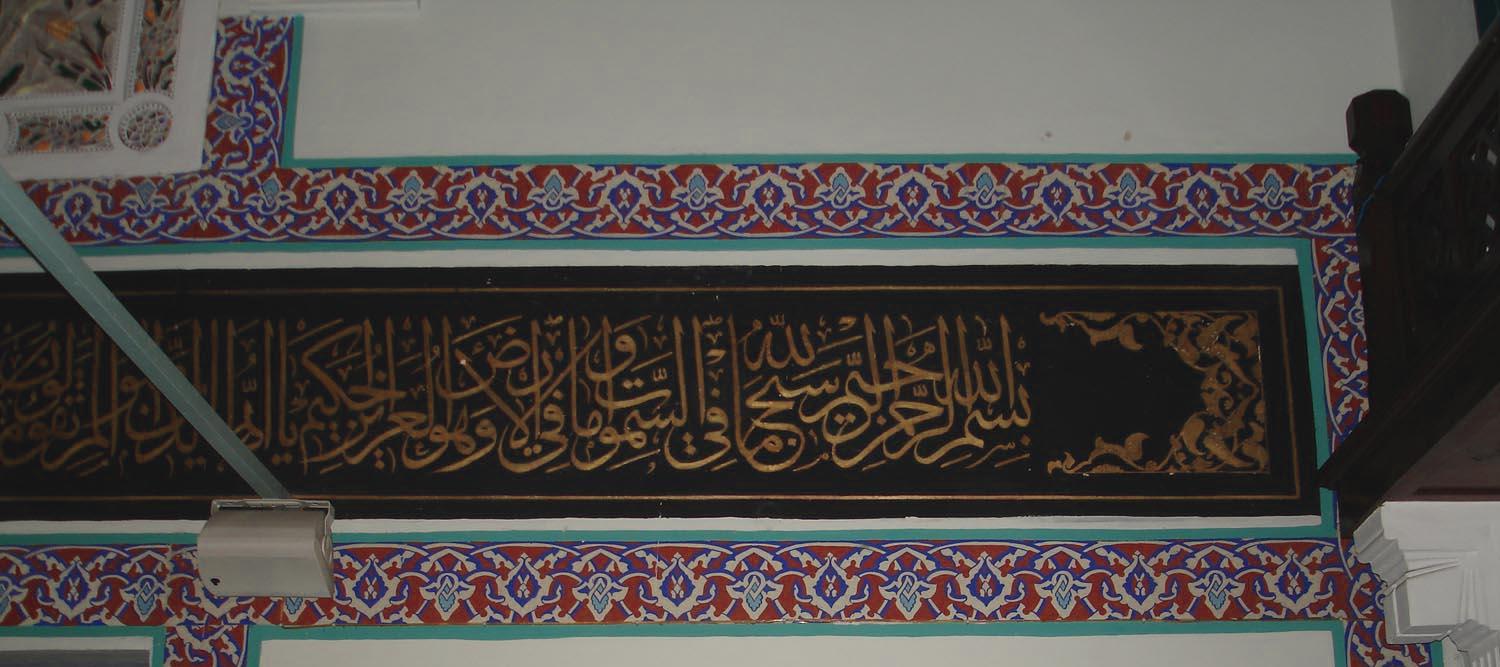 بسم الله الرحمن الرحيم سبح لله ما في السموات وما في الارض وهو العزيز الحكيم يا ايها الذين امنوا لم تقولون